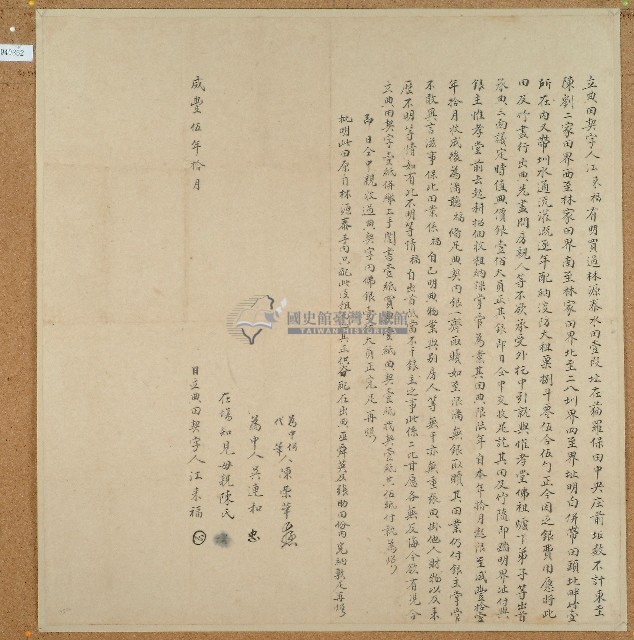 立典田契字人江來福有明買過林源泰水田壹段址在葫蘆保田中央庄前址數不計東至
陳劉二家田界西至林家田界南至林家田界北至二八圳界四至界址明白併帶田頭北畔竹壹
所在內又帶圳水通流灌溉逐年配納淩防大租粟捌斗叁伍合伍勺正今因乏銀費用愿將此
田及竹盡行出典先盡問房親人等不欲承受外托中引就與惟孝堂佛祖爐下弟子等出首
承典三面議定時值典價銀壹佰大員正其銀即日仝中交收足訖其田及竹隨即踏明界址付與
銀主惟孝堂前去起耕招佃收租納課掌管為業其田典限陸年自本年拾月起限至咸豐拾壹
年拾月收成後為滿聽福備足典契內銀一齊取贖如至限滿無銀取贖其田業仍付銀主掌管
不敢異言滋事保此田業係福自己明典物業與別房人等無干亦無重張典掛他人財物以及來
歷不明等情如有此不明等情福自出首抵當不干銀主之事此係二比甘愿各無反悔今欲有憑合
立典田契字壹紙併繳上手鬮書壹紙買契壹紙典契壹紙找契壹紙共伍紙付執為炤
即日仝中親收過典契字內佛銀壹佰大員正完足再炤
批明此田原自林源泰手內只配此淩租
咸豐伍年拾月
為中併代筆人陳榮華
為中人吳連和 忠
在場知見母親陳氏
日立典田契字人江來福
國史館臺灣文獻館
TAIWAN HISTORICA